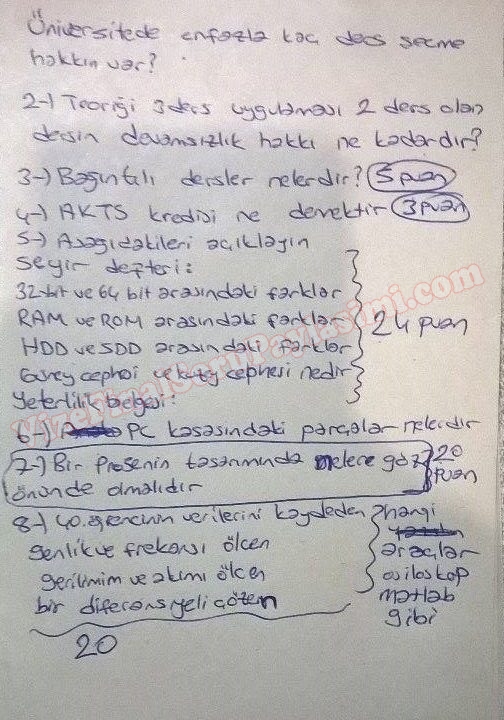 Üniversitede enfazla kaç ders seçme
hakkın var?
2-) Teoriği 3 ders uygulması 2 ders olan
dersin devamsızlık hakkı ne kadardır?
3-) Bağıntılı dersler nelerdir? 5 puan
4-) AKTS kredisi ne demektir 3 puan
5-) Aşağıdakileri açıklayın
Seyir defteri:
32-bit ve 64 bit arasındaki farklar
RAM ve ROM arasındaki farklar
HDD ve SDD arasındaki farklar
Güney cephesi ve kuzey cephesi nedir
Yeterlilik belgesi:
24 puan
6-) PC kasasındaki parçalar nelerdir
7-) Bir Prosenin tasarımında nelere göz
önünde olmalıdır
20 puan
8-) 40 öğrencinin verilerini kaydeden
genlik ve frekansı ölçen
gerilimim ve akımı ölçen
bir diferansiyeli çözen
hangi
araçlar
osiloskop
matlab
gibi
20
VizeFinalSoruPaylasimi.com